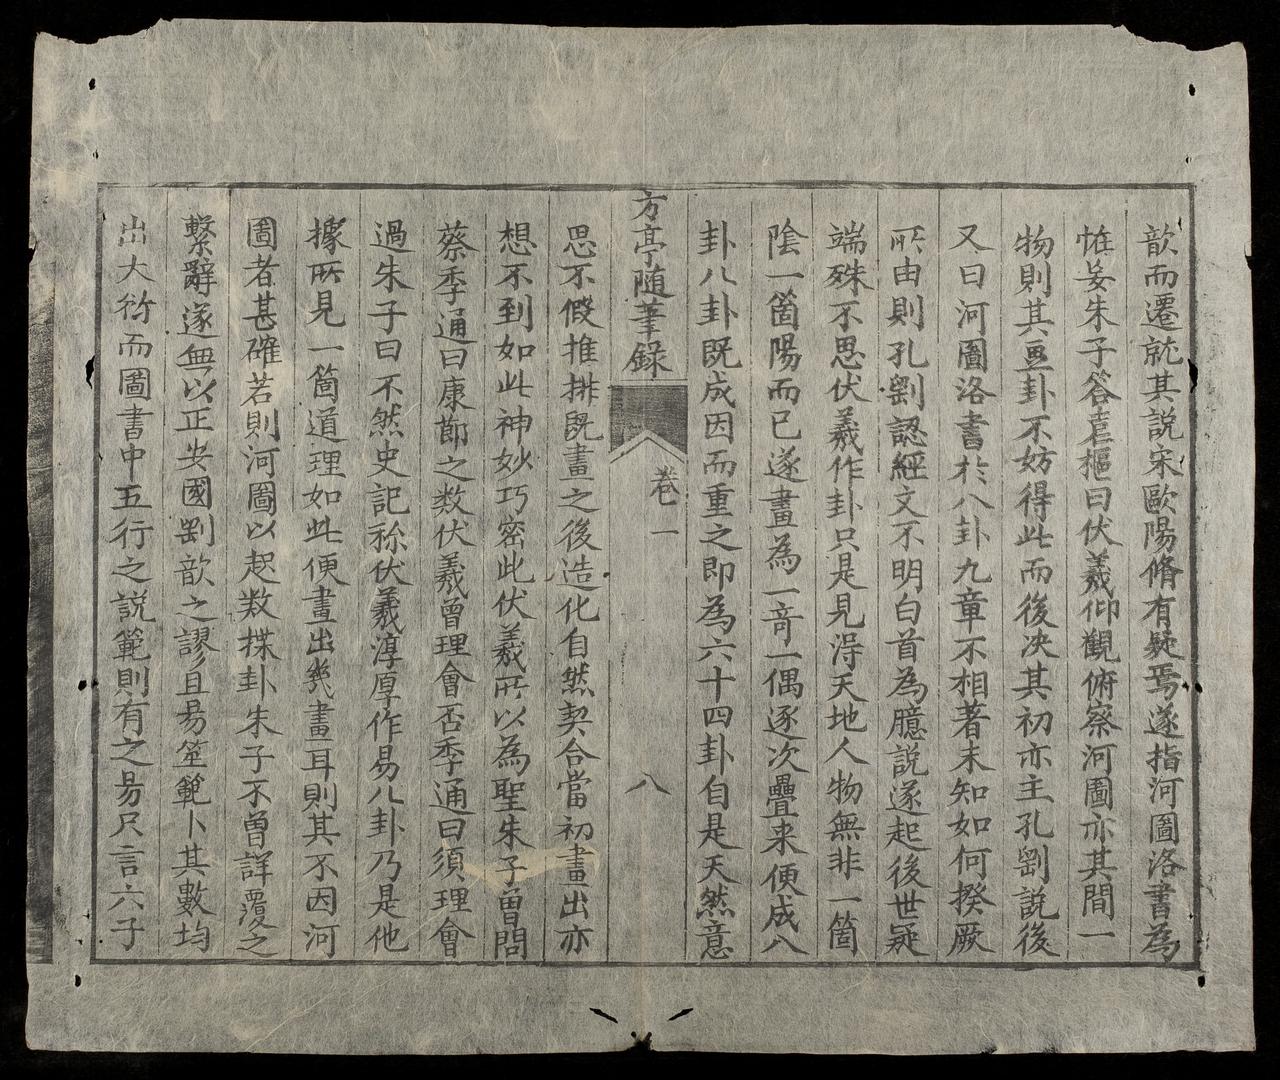 歆而遷就其說宋歐陽脩有疑焉遂指河圖洛書為
恠妄朱子答袁樞曰伏羲仰觀俯察河圖亦其間一
物則其畫卦不妨得此而後決其初亦主孔劉說後
又曰河圖洛書於八卦九章不相著未知如何揆厥
所由則孔劉認經文不明白首為臆說遂起後世疑
端殊不思伏羲作卦只是見淂天地人物無非一箇
陰一箇陽而已遂畫為一竒一偶逐次疊来便成八
卦八卦既成因而重之即為六十四卦自是天然意
方亭随筆錄
卷一
八
思不假推排旣畫之後造化自然契合當初畫出亦
想不到如此神妙巧密此伏羲所以為聖朱子曽問
蔡季通曰康節之数伏羲曾理會否季通曰須理會
過朱子曰不然史記称伏羲淳厚作易八卦乃是他
據所見一箇道理如此便畫出幾畫耳則其不因河
圖者甚確若則河圖以起数揲卦朱子不曽詳覆之
繫辭遂無以正安國劉歆之謬且昜筮範卜其數均
出大衍而圖書中五行之說範則有之昜只言六子